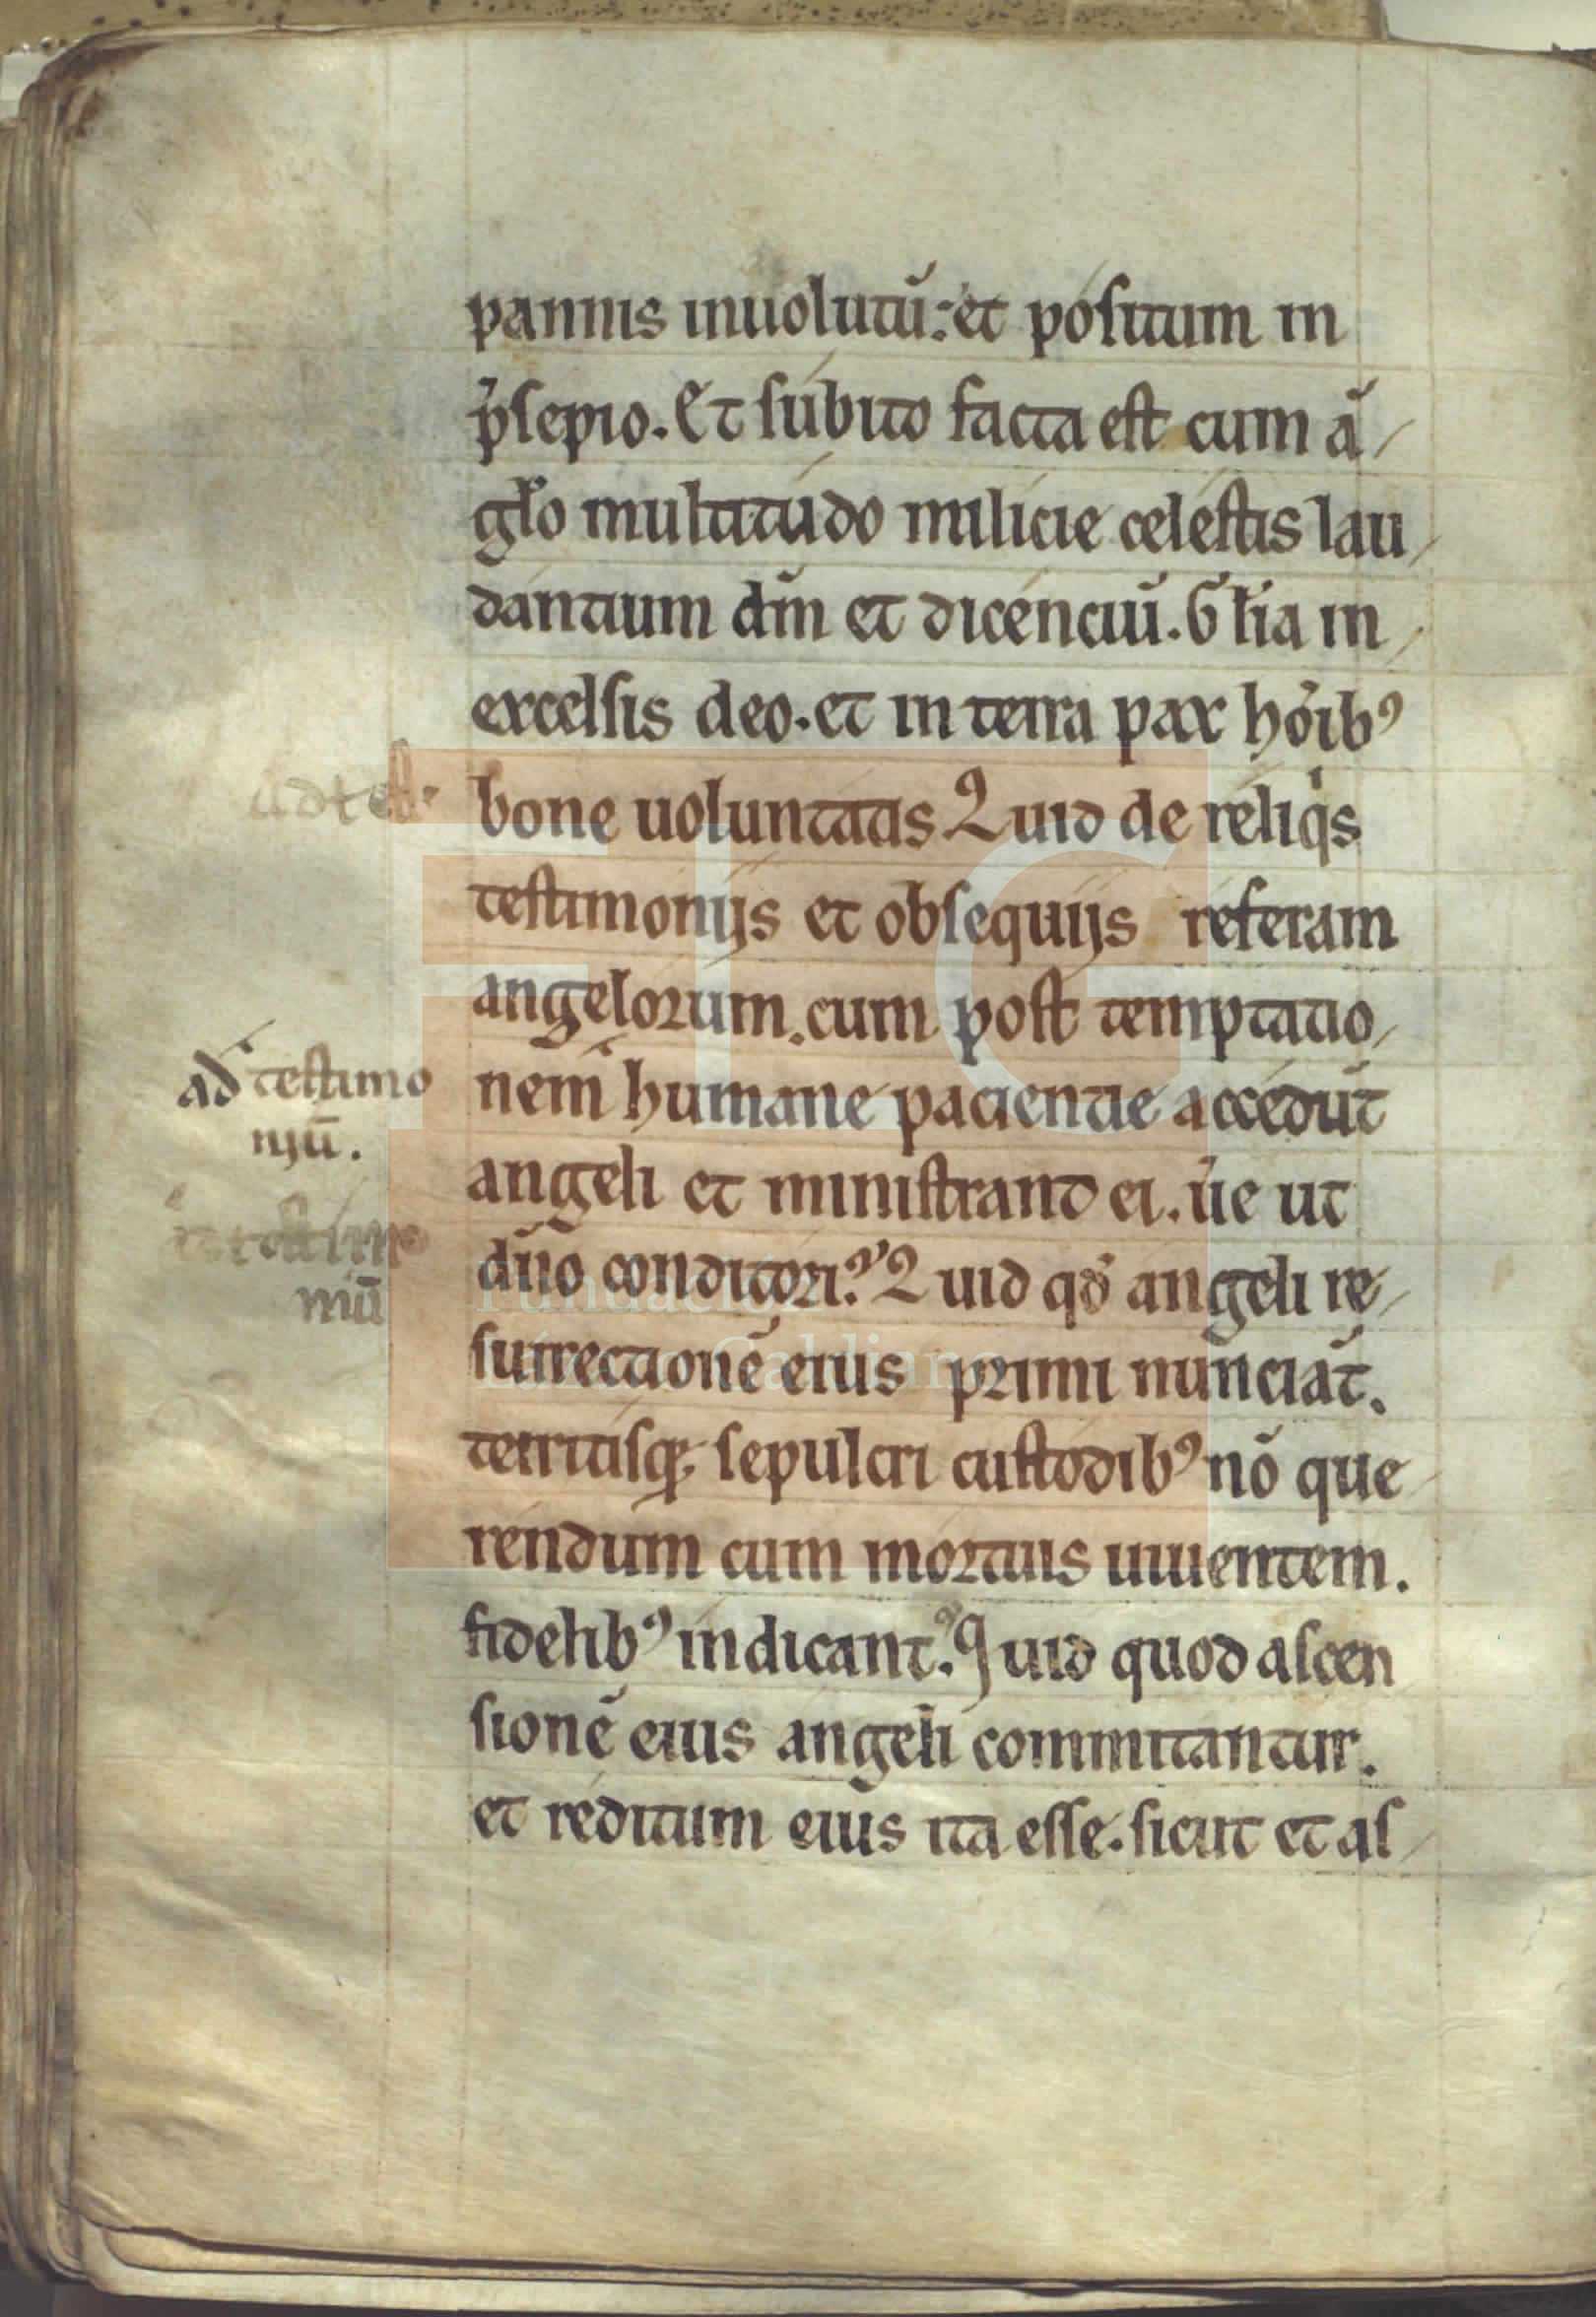 pannis inuolutū: et positum in
p̄sepio. Et subito facta est cum ā
gl̄o multitudo milicie celestis lau
dantium dm̄ et dicenciū. Gl̄ia in
excelsis deo. et in terra pax ho̅ibꝰ
bone uoluntatis Quid de reliqis
testimonijs et obsequijs referam
angelorum. cum post temptatio
nem humane pacientie accedūt
ad testimo
njū.
angeli et ministrant ei. ūe ut
dn̄o conditori? Quid qd̄ angeli re
mū
surrectionē eius primi nunciāt.
territisqꝫ sepulcri custodibꝰ nō que
rendum cum mortuis uiuentem.
fidelibꝰ indicant? Quid quod ascen
sionē eius angeli commitantur.
et reditum eius ita esse. sicut et as